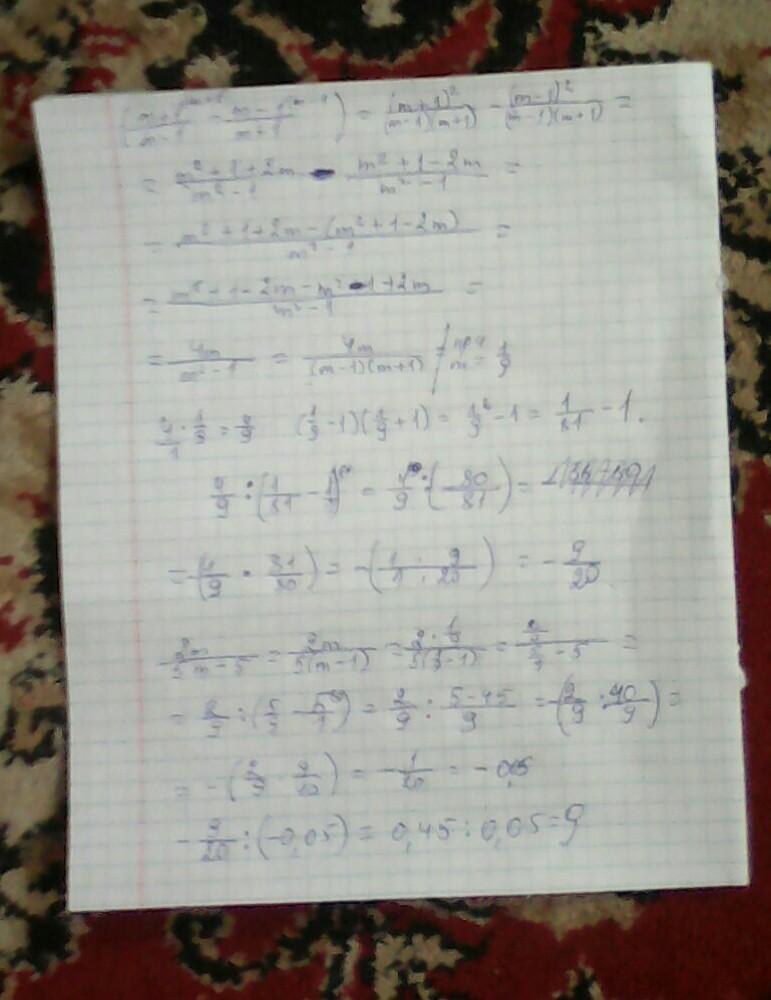 (m+1^(m+1)/m-1 - m-1^(m-1)/m+1) = (m+1)²/(m-1)(m+1) - (m-1)²/(m-1)(m+1) =
= m²+1+2m/m²-1 - m²+1-2m/m²-1 =
= m²+1+2m-(m²+1-2m)/m²-1 =
= m²+1-2m-m²-1+2m/m²-1 =
= 4m/m²-1 = 4m/(m-1)(m+1) = при m = 1/9
4/1 · 1/9 = 4/9 (1/9-1)(1/9+1) = 1/9² - 1 = 1/81 - 1.
4/9 : (1/81 - 1/1) = 4/9 : (-80/81) =
= -(4/9 · 81/80) = -(1/1 · 9/20) = -9/20
2m/5m-5 = 2m/5(m-1) = 2·1/9/5(1/9-1) = 2/9/5/9-5 =
= 2/9 : (5/9 - 5/1) = 2/9 : 5-45/9 = -(2/9 : 40/9) =
= -(2/9 · 9/40) = -1/20 = -0,05
-9/20 : (-0,05) = 0,45 : 0,05 = 9